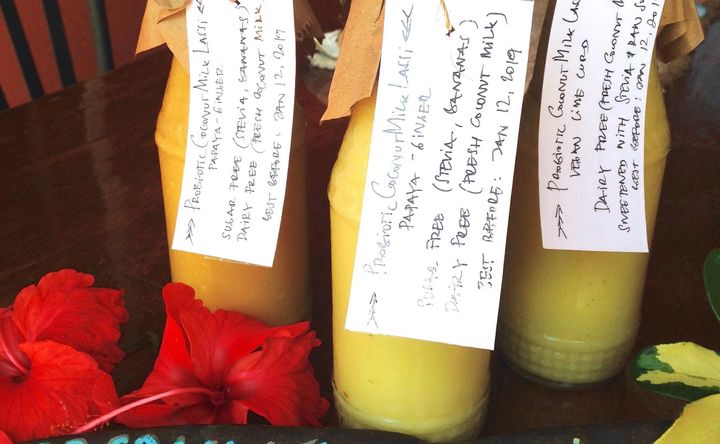 >>> PROBIOTIC COCONUT MILK LASSI <<<
PAPAYA-GINGER
SUGAR FREE (STEVIA, BANANAS)
DAIRY FREE (FRESH COCONUT MILK)
BEST BEFORE: JAN 12, 2019
>>> PROBIOTIC COCONUT MILK LASSI <<<
PAPAYA-GINGER
SUGAR FREE (STEVIA, BANANAS)
DAIRY FREE (FRESH COCONUT MILK)
BEST BEFORE: JAN 12, 2019
>>> PROBIOTIC COCONUT MILK LASSI
VEGAN LIME CURD
DAIRY FREE (FRESH COCONUT
SWEETENED WITH STEVIA &
BEST BEFORE: JAN 12, 2019